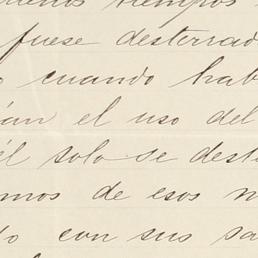 tiempos
fuese desterrad
o cuando hab
ían el uso del
él solo se dest
mos de esos m
to con sus sa